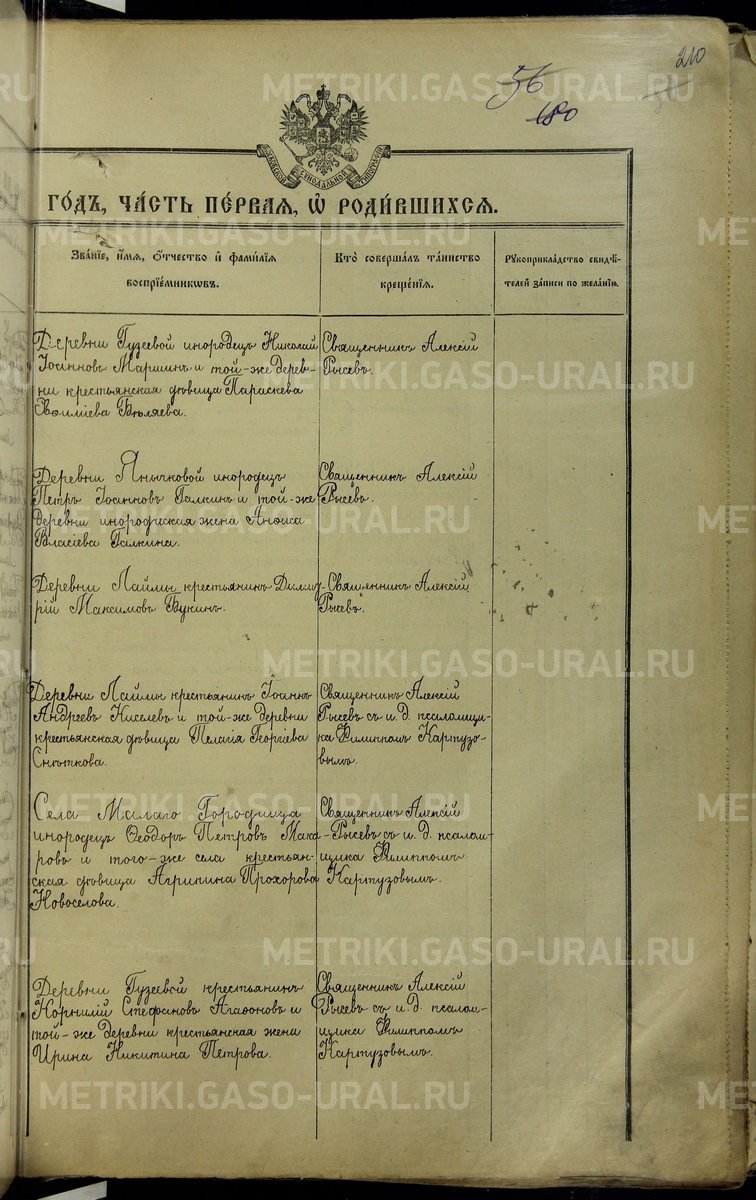 210
56
180
МОСКОВСКОЙ СѴНОДАЛЬНОЙ ТИПОГРАФІИ
ГО́ДЪ, ЧА́СТЬ ПЕ́РВАЯ, Ѡ҆ РОДИ́ВШИХСЯ.
Зва́нїе, и҆́мя, ѻ҆́тчество и҆ фами́лїя
воспрїе́мникѡвъ.
Кто̀ соверша́лъ та́инство
креще́нїя.
Рꙋкоприкла́дство свидѣ́-
телей за́писи по жела́нїю.
Деревни Гузеевой инородецъ Николай
Іоанновъ Маршинъ и той-же дерев-
ни крестьянская дѣвица Параскева
Ѳвиміева Бѣляева.
Священникъ Алексій
Рысевъ.
Деревни Янычковой инородецъ
Петръ Іоанновъ Галкинъ и той-же
деревни инородческая жена Анѳиса
Власіева Галкина.
Священникъ Алексій
Рысевъ.
Деревни Лаймы крестьянинъ Димит-
рій Максимовъ Букинъ.
Священникъ Алексій
Рысевъ.
Деревни Лаймы крестьянинъ Іоаннъ
Андреевъ Киселевъ и той-же деревни
крестьянская дѣвица Пелагія Георгіева
Снѣткова.
Священникъ Алексій
Рысевъ съ и. д. псаломщи-
ка Филиппомъ Картузо-
вымъ.
Села Малаго Городища
инородецъ Ѳеодоръ Петровъ Мака-
ровъ и того-же села крестьян-
ская дѣвица Агрипина Прохорова
Новоселова.
Священникъ Алексій
Рысевъ съ и. д. псалом-
щика Филиппомъ
Картузовымъ.
Деревни Гузеевой крестьянинъ
Корнилій Стефановъ Агафоновъ и
той-же деревни крестьянская жена
Ирина Никитина Петрова.
Священникъ Алексій
Рысевъ съ и. д. псалом-
щика Филиппомъ
Картузовымъ.
METRIKI.GASO-URAL.RU
METRIKI.GASO-URAL.RU
METRIKI.GASO-URAL.RU
METRIKI.GASO-URAL.RU
METRIKI.GASO-URAL.RU
METRIKI.GASO-URAL.RU
METRIKI.GASO-URAL.RU
METRIKI.GASO-URAL.RU